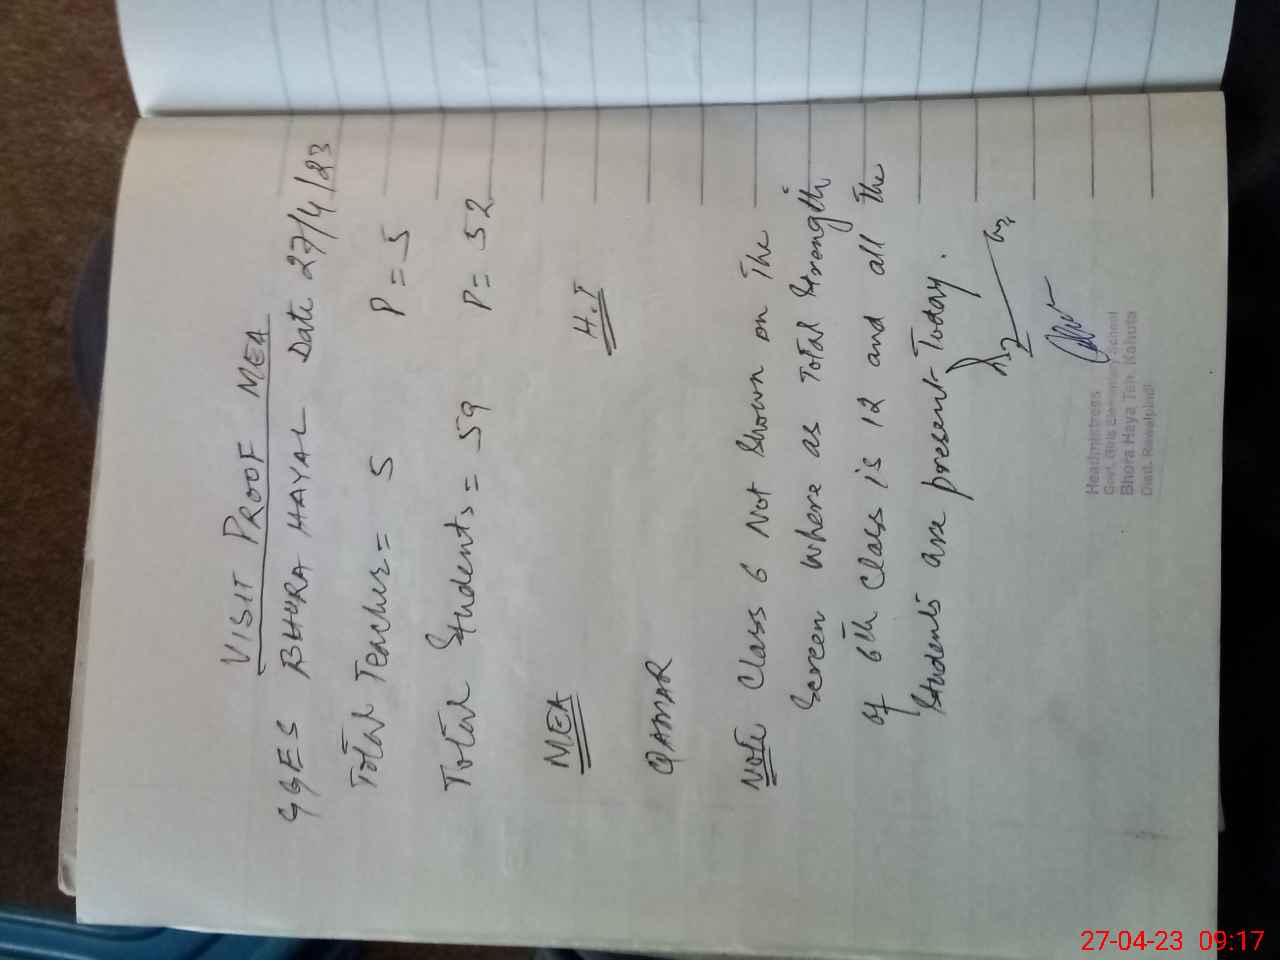 VISIT PROOF MEA
GGES BHORA HAYAL Date 27/4/23
Total Teacher = 5 P = 5
Total Students = 59 P = 52
MEA H.T
QAMAR
Note Class 6 Not Shown on The
Screen where as Total Strength
of 6th Class is 12 and all the
Students are present Today.
Headmistress
Govt. Girls Elementary School
Bhora Haya Teh. Kahuta
Distt. Rawalpindi
27-04-23 09:17